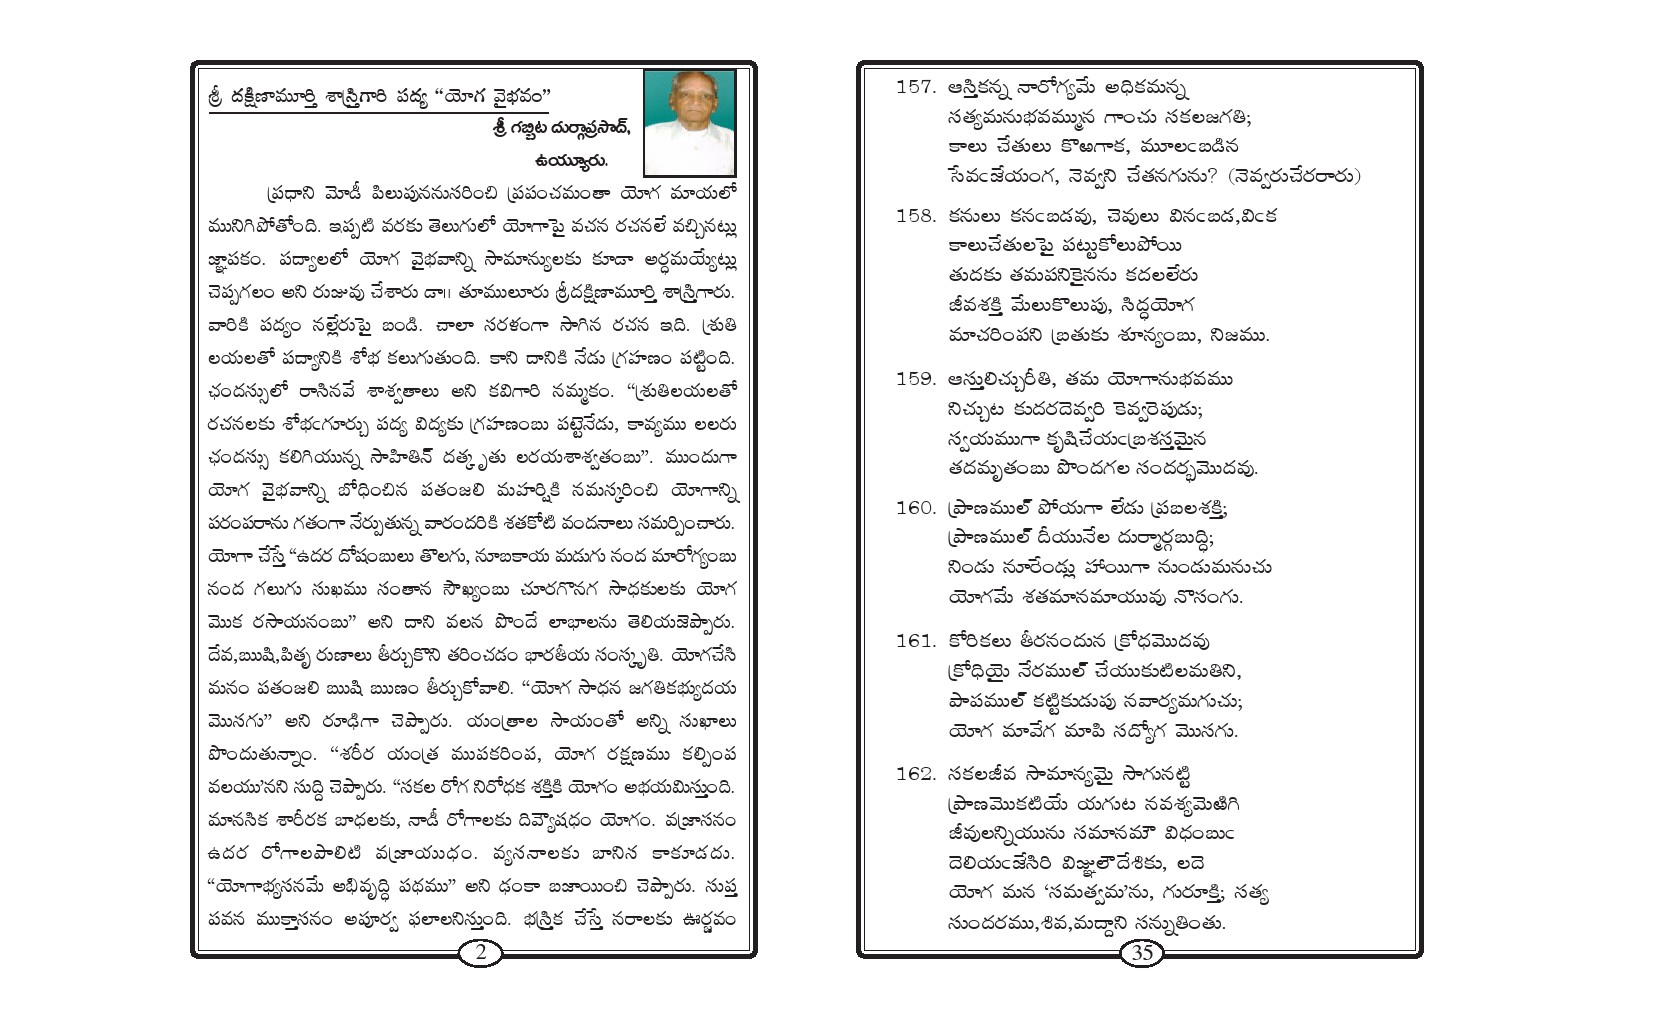 శ్రీ దక్షిణామూర్తి శాస్త్రిగారి పద్య “యోగ వైభవం”
శ్రీ గబ్బిట దుర్గాప్రసాద్,
ఉయ్యూరు.
ప్రధాని మోడీ పిలుపుననుసరించి ప్రపంచమంతా యోగ మాయలో
మునిగిపోతోంది. ఇప్పటి వరకు తెలుగులో యోగాపై వచన రచనలే వచ్చినట్లు
జ్ఞాపకం. పద్యాలలో యోగ వైభవాన్ని సామాన్యులకు కూడా అర్ధమయ్యేట్లు
చెప్పగలం అని రుజువు చేశారు డా॥ తూములూరు శ్రీదక్షిణామూర్తి శాస్త్రిగారు.
వారికి పద్యం నల్లేరుపై బండి. చాలా సరళంగా సాగిన రచన ఇది. శ్రుతి
లయలతో పద్యానికి శోభ కలుగుతుంది. కాని దానికి నేడు గ్రహణం పట్టింది.
ఛందస్సులో రాసినవే శాశ్వతాలు అని కవిగారి నమ్మకం. “శ్రుతిలయలతో
రచనలకు శోభఁగూర్చు పద్య విద్యకు గ్రహణంబు పట్టెనేడు, కావ్యము లలరు
ఛందస్సు కలిగియున్న సాహితిన్ దత్కృతు లరయశాశ్వతంబు”. ముందుగా
యోగ వైభవాన్ని బోధించిన పతంజలి మహర్షికి నమస్కరించి యోగాన్ని
పరంపరాను గతంగా నేర్పుతున్న వారందరికి శతకోటి వందనాలు సమర్పించారు.
యోగా చేస్తే “ఉదర దోషంబులు తొలగు, నూబకాయ మడుగు నంద మారోగ్యంబు
నంద గలుగు సుఖము సంతాన సౌఖ్యంబు చూరగొనగ సాధకులకు యోగ
మొక రసాయనంబు” అని దాని వలన పొందే లాభాలను తెలియజెప్పారు.
దేవ,ఋషి,పితృ రుణాలు తీర్చుకొని తరించడం భారతీయ సంస్కృతి. యోగచేసి
మనం పతంజలి ఋషి ఋణం తీర్చుకోవాలి. “యోగ సాధన జగతికభ్యుదయ
మొసగు” అని రూఢిగా చెప్పారు. యంత్రాల సాయంతో అన్ని సుఖాలు
పొందుతున్నాం. “శరీర యంత్ర ముపకరింప, యోగ రక్షణము కల్పింప
వలయు’నని సుద్ది చెప్పారు. “సకల రోగ నిరోధక శక్తికి యోగం అభయమిస్తుంది.
మానసిక శారీరక బాధలకు, నాడీ రోగాలకు దివ్యౌషధం యోగం. వజ్రాసనం
ఉదర రోగాలపాలిటి వజ్రాయుధం. వ్యసనాలకు బానిస కాకూడదు.
“యోగాభ్యసనమే అభివృద్ధి పథము” అని ఢంకా బజాయించి చెప్పారు. సుప్త
పవన ముక్తాసనం అపూర్వ ఫలాలనిస్తుంది. భస్త్రిక చేస్తే నరాలకు ఊర్జవం
2
157. ఆస్తికన్న నారోగ్యమే అధికమన్న
సత్యమనుభవమ్మున గాంచు సకలజగతి;
కాలు చేతులు కొఱగాక, మూలఁబడిన
సేవఁజేయంగ, నెవ్వని చేతనగును? (నెవ్వరుచేరరారు)
158. కనులు కనఁబడవు, చెవులు వినఁబడ,విఁక
కాలుచేతులపై పట్టుకోలుపోయి
తుదకు తమపనికైనను కదలలేరు
జీవశక్తి మేలుకొలుపు, సిద్ధయోగ
మాచరింపని బ్రతుకు శూన్యంబు, నిజము.
159. ఆస్తులిచ్చురీతి, తమ యోగానుభవము
నిచ్చుట కుదరదెవ్వరి కెవ్వరెపుడు;
స్వయముగా కృషిచేయఁబ్రశస్తమైన
తదమృతంబు పొందగల సందర్భమొదవు.
160. ప్రాణముల్ పోయగా లేడు ప్రబలశక్తి;
ప్రాణముల్ దీయునేల దుర్మార్గబుద్ధి;
నిండు నూరేండ్లు హాయిగా నుండుమనుచు
యోగమే శతమానమాయువు నొసంగు.
161. కోరికలు తీరనందున క్రోధమొదవు
క్రోధియై నేరముల్ చేయుకుటిలమతిని,
పాపముల్ కట్టికుడుపు నవార్యమగుచు;
యోగ మావేగ మాపి సద్యోగ మొసగు.
162. సకలజీవ సామాన్యమై సాగునట్టి
ప్రాణమొకటియే యగుట నవశ్యమెఱిగి
జీవులన్నియును సమానమౌ విధంబుఁ
దెలియఁజేసిరి విజ్ఞులౌదేశికు, లదె
యోగ మన ‘సమత్వమ’ను, గురూక్తి; సత్య
సుందరము,శివ,మద్దాని సన్నుతింతు.
35